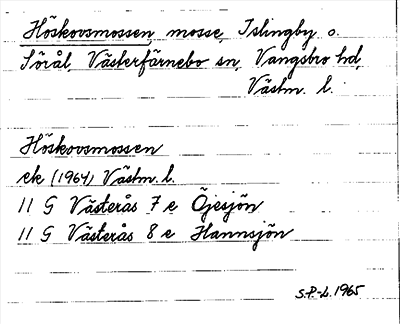 Höskovsmossen mosse, Islingby o.
Sörål, Västerfärnebo sn, Vangsbro hd,
Västm. l.
Höskovsmossen
ek (1964) Västm. l.
11 G Västerås 7 e Öjesjön
11 G Västerås 8 e Hannsjön
S.P-L. 1965